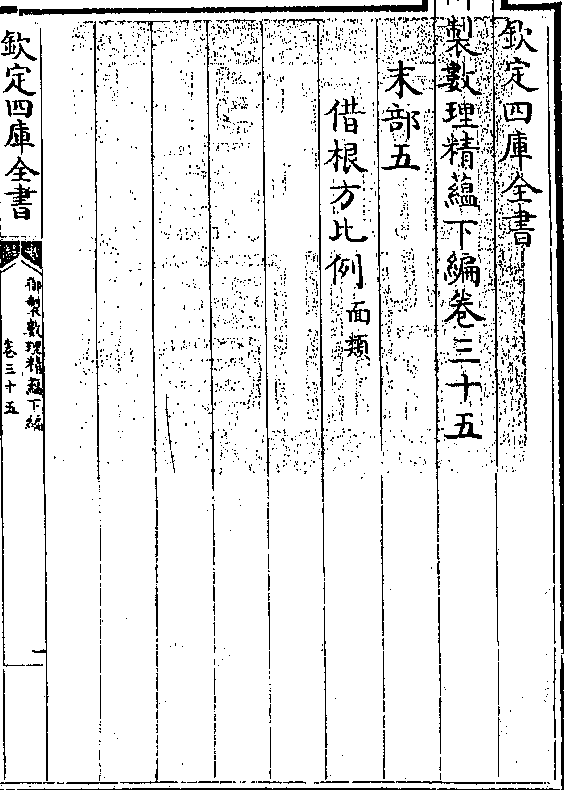 欽定四庫全書
御製數理精蘊下編卷三十五
末部五
借根方比例面類
欽定四庫全書
御製數理精蘊下編
卷三十五
一